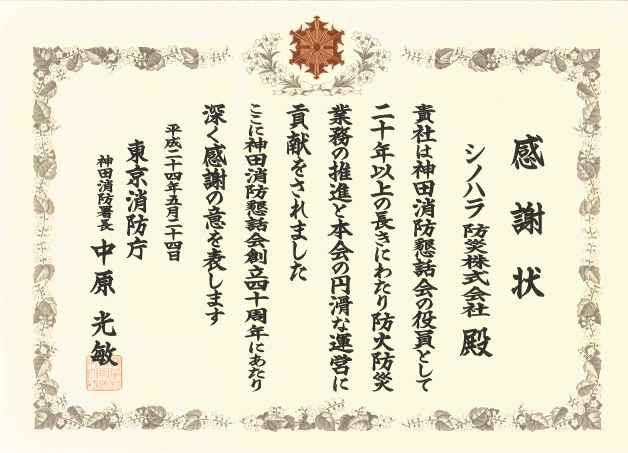 感謝状
シノハラ防災株式会社 殿
貴社は神田消防懇話会の役員として
二十年以上の長きにわたり防火防災
業務の推進と本会の円滑な運営に
貢献をされました
ここに神田消防懇話会創立四十周年にあたり
深く感謝の意を表します
平成二十四年五月二十四日
東京消防庁
神田消防署長 中原光敏